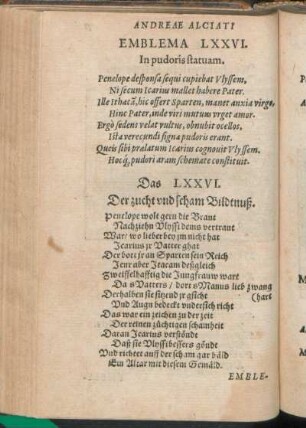 ANDREAE ALCIATI
EMBLEMA LXXVI.
In pudoris statuam.
Penelope desponsa sequi cupiebat Vlyssem,
Ni secum Icarius mallet habere Pater.
Ille Ithacã, hic offert Sparten, manet anxia virgo,
Hinc Pater, inde viri mutuus vrget amor.
Ergò sedens velat vultus, obnubit ocellos,
Ista verecundi signa pudoris erant.
Queis sibi prælatum Icarius cognouit Vlyssem,
Hocq́; pudori aram schemate constituit.
Das LXXVI.
Der zucht vnd scham Bildtnuß.
Penelope wolt gern die Braut
Nachziehn Vlyssi dems vertraut
War/ wo lieber bey jm nicht hat
Icarius jr Vatter ghat
Der bott jr an Sparten sein Reich
Jener aber Itacam deßgleich
Zweiffelhafftig die Jungfrauw wart
Da s Vatters / dort s Manns lieb zwang
(hart
Derhalben sie sitzend jr gsicht
Vnd Augn bedeckt vndersich richt
Das war ein zeichen zu der zeit
Der reinen züchtigen schamheit
Daran Icarius verstündt
Daß sie Vlyssi bessers gündt
Vnd richtet auff der scham gar bald
Ein Altar mit diesem Gemäld.
EMBLE-